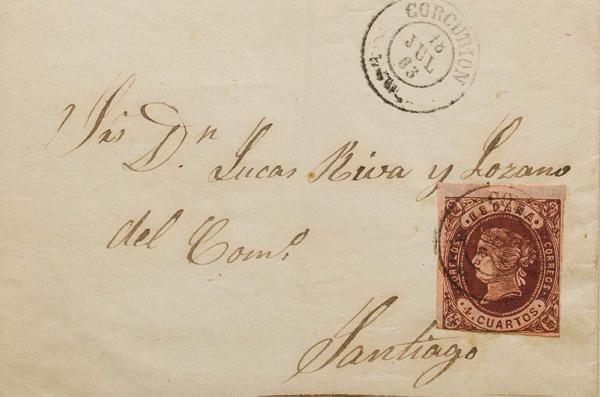 CORCUBION
18
JUL
63
Srs
D.n Lucas Riva y Lozano
del Com.o
Santiago
ESPAÑA
CORREOS
CORREOS
4 CUARTOS